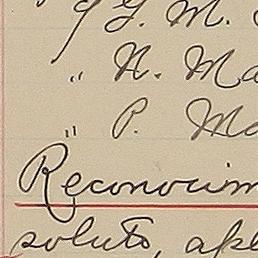 G. M.
„ N. Ma
„ P. Ma
Reconocim
soluto, ape